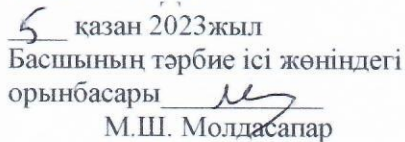 5 қазан 2023жыл
Басшының тәрбие ісі жөніндегі
орынбасары
М.Ш. Молдасапар